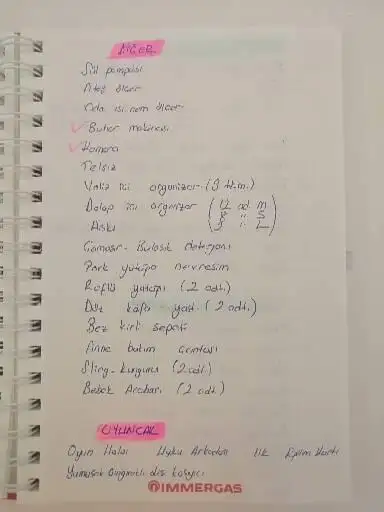 DİĞER
Süt pompası
Ateş ölçer
Oda ısı nem ölçer
Buhar makinası
Kamera
Telsiz
Valiz içi organizer (9 tkm.)
Dolap içi organizer (12 ad. M
8 " S
Askı " L)
Çamaşır - Bulaşık deterjanı
Park yatağı nevresim
Reflü yatağı (2 adt.)
Düz kafa yast. (2 adt.)
Bez kirli sepeti
Anne bakım çantası
Sling - kanguru (2 adt.)
Bebek Arabası (2 adt.)
OYUNCAK
Oyun Halısı Uyku Arkadaşı İlk Eğitim Kartı
Yumuşak Çıngıraklı diş kaşıyıcı
IMMERGAS